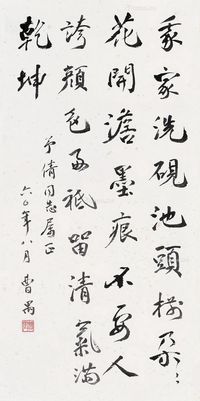 我家洗硯池頭樹朵〻
花開澹墨痕不要人
誇顏色好祗留清氣滿
乾坤
予清同志屬正
六〇年八月 曹禺